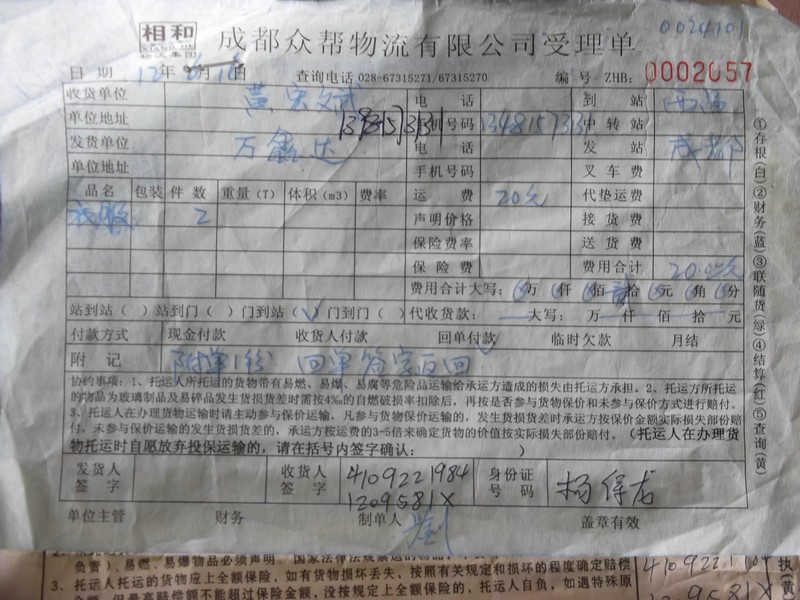 相和
成都众帮物流有限公司受理单
0024101
日期 12年6月16日 查询电话 028-67315271/67315270 编号 ZHB: 0002057
收货单位 电话 到站
单位地址 手机号码 中转站
发货单位 万鑫达 电话 发站 成都
单位地址 手机号码 叉车费
品名 包装 件数 重量(T) 体积(m3) 费率 运费 20元 代垫运费
服 2 声明价格 接货费
保险费率 送货费
保险费 费用合计 20.00元
费用合计大写: 万 仟 佰 贰拾 元 角 分
站到站( ) 站到门( ) 门到站(√) 门到门( ) 代收货款: 大写: 万 仟 佰 拾 元
付款方式 现金付款 收货人付款 回单付款 临时欠款 月结
附记 附单1份 回单签字返回
协约事项:1、托运人所托运的货物带有易燃、易爆、易腐等危险品运输给承运方造成的损失由托运方承担。2、托运方所托运
的物品为玻璃制品及易碎品发生货损货差时需按4‰的自燃破损率扣除后,再按是否参与货物保价和未参与保价方式进行赔付。
3、托运人在办理货物运输时请主动参与保价运输。凡参与货物保价运输的,发生货损货差时承运方按保价金额实际损失部份赔
付。未参与保价运输的发生货损货差的,承运方按运费的3-5倍来确定货物的价值按实际损失部份赔付。(托运人在办理货
物托运时自愿放弃投保运输的,请在括号内签字确认: )
发货人签字 收货人签字 4109221984
1209581X 身份证号码 杨得龙
单位主管 财务 制单人 盖章有效
①存根(白)②财务(蓝)③联随货(绿)④结算(红)⑤查询(黄)
负责)、易燃、易爆物品必须声明、国家法律法规禁运的物品
3、托运人托运的货物应上全额保险,如有货物损坏丢失,按照有关规定和损坏的程度确定赔偿